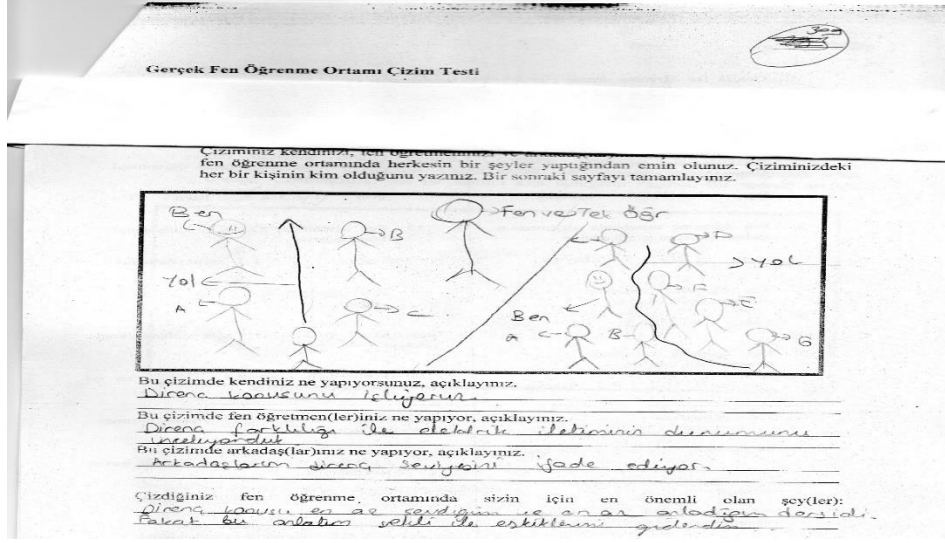 Gerçek Fen Öğrenme Ortamı Çizim Testi
Çiziminiz kendinizi, fen öğretmeninizi ve
fen öğrenme ortamında herkesin bir şeyler yaptığından emin olunuz. Çiziminizdeki
her bir kişinin kim olduğunu yazınız. Bir sonraki sayfayı tamamlayınız.
Ben
B
Fen ve Tek Öğr
D
Yol
Yol
A
C
Ben
E
A
B
G
Bu çizimde kendiniz ne yapıyorsunuz, açıklayınız.
Direnç konusunu işliyoruz.
Bu çizimde fen öğretmen(ler)iniz ne yapıyor, açıklayınız.
Direnç farklılığı ile elektrik iletiminin durumunu
inceliyorduk
Bu çizimde arkadaş(lar)ınız ne yapıyor, açıklayınız.
Arkadaşlarım direnç seviyesini ifade ediyor.
Çizdiğiniz fen öğrenme ortamında sizin için en önemli olan şey(ler):
Direnç konusu en az sevdiğim ve en az anladığım dersidi.
Fakat bu anlatım şekli ile eksiklerimi giderdim.